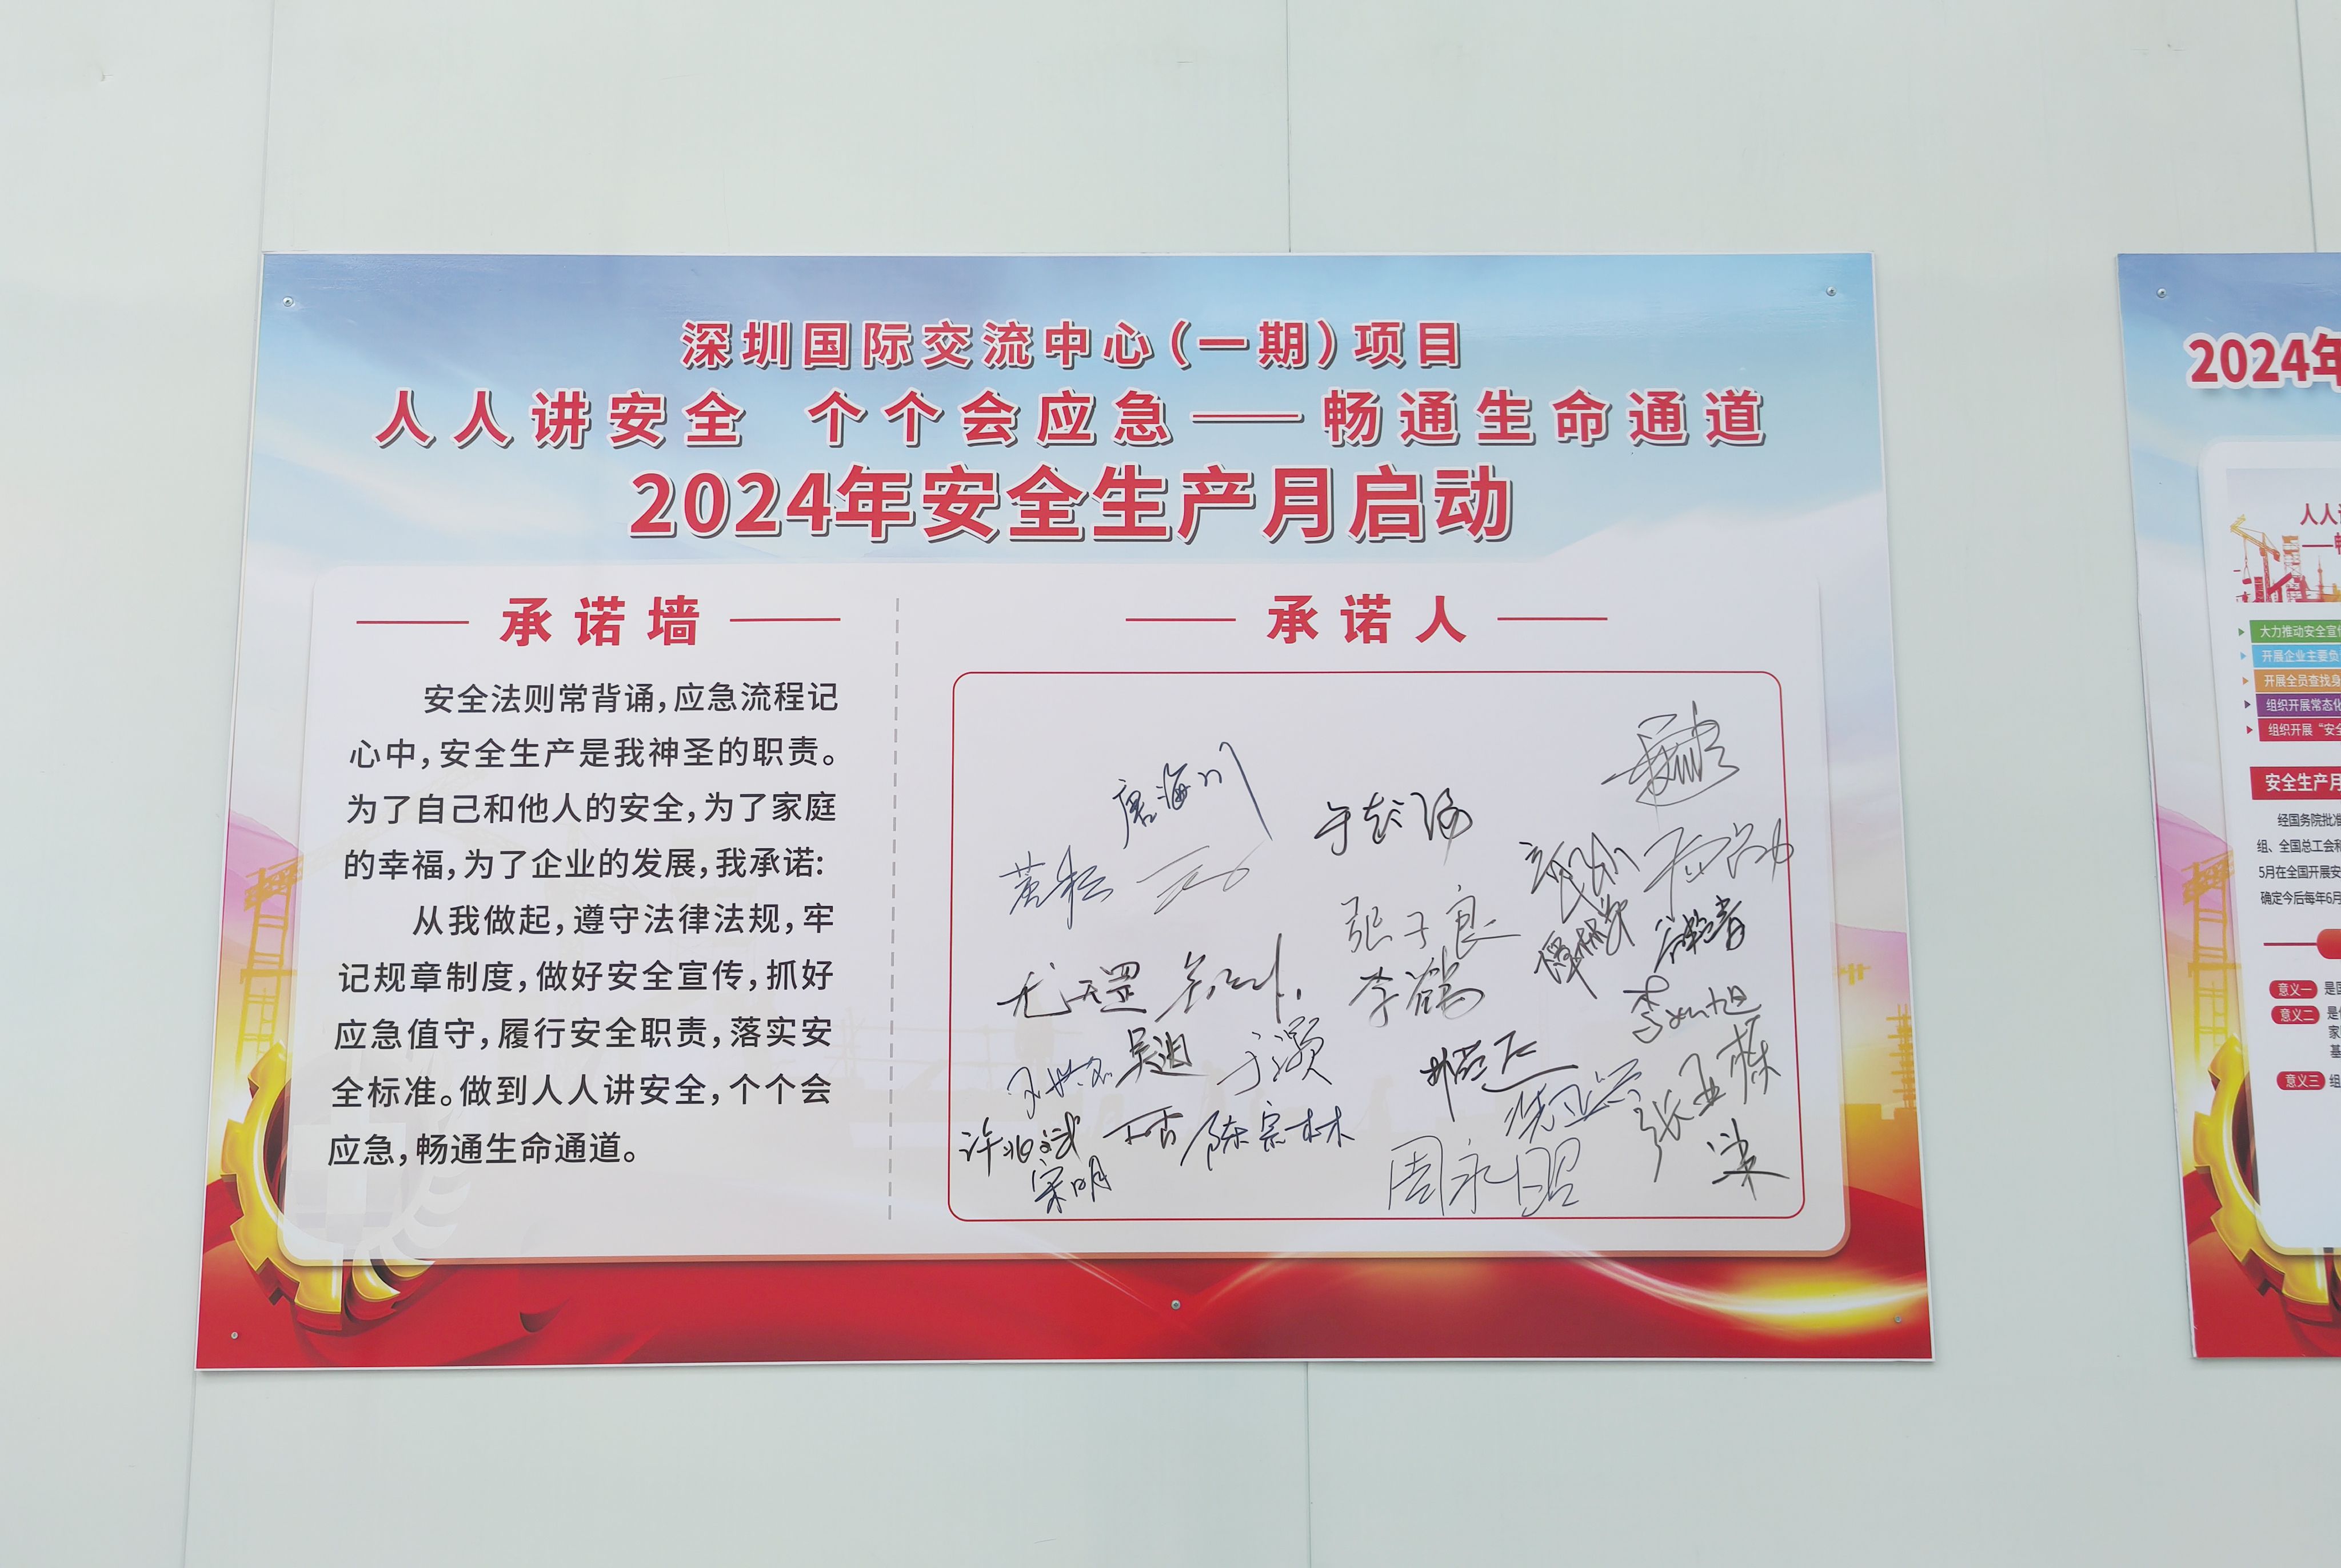 深圳国际交流中心（一期）项目
人人讲安全 个个会应急——畅通生命通道
2024年安全生产月启动
承诺墙
安全法则常背诵，应急流程记
心中，安全生产是我神圣的职责。
为了自己和他人的安全，为了家庭
的幸福，为了企业的发展，我承诺：
从我做起，遵守法律法规，牢
记规章制度，做好安全宣传，抓好
应急值守，履行安全职责，落实安
全标准。做到人人讲安全，个个会
应急，畅通生命通道。
承诺人
唐海川
张子良
李鹤
吴迪
于灏
陈宗林
宋明
周永昭
张亚栋
2024年
人人
大力推动安全宣
开展企业主要负
开展全员查找身
组织开展常态化
组织开展“安全
安全生产月
经国务院批准
组、全国总工会和
5月在全国开展安
确定今后每年6月
意义一 是
意义二 是
家
基
意义三 组